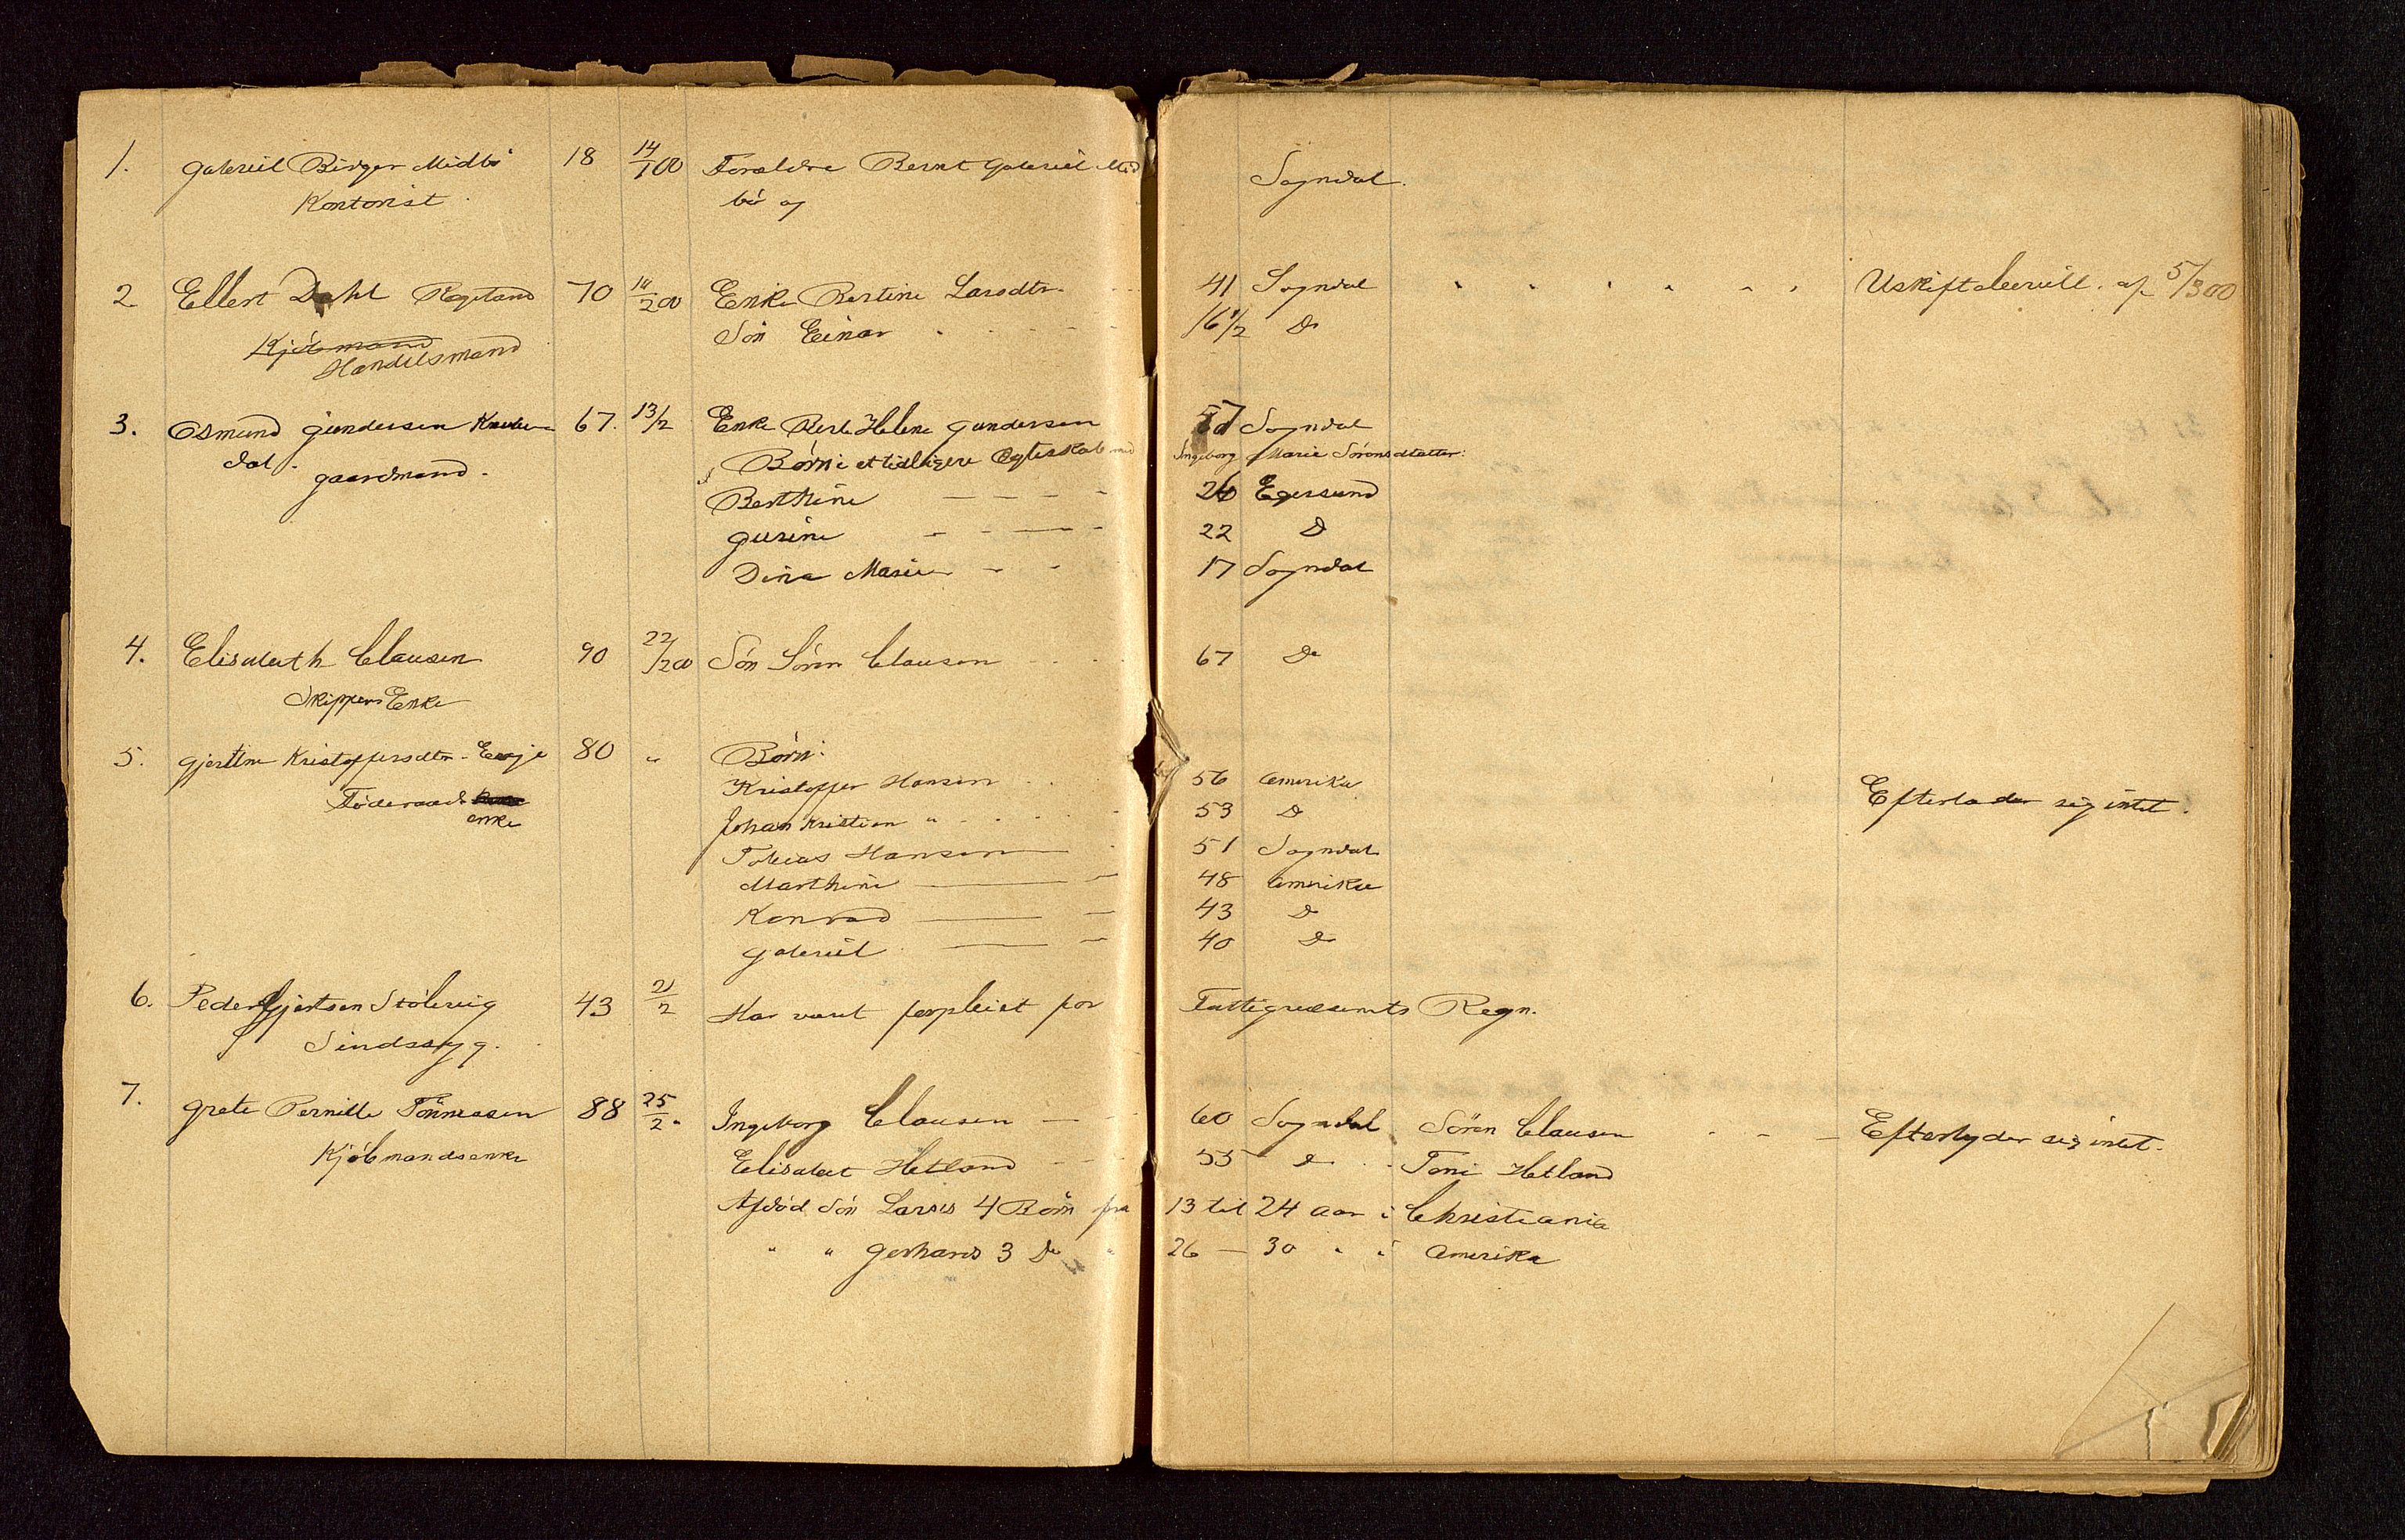 1. Gabriel Birger Midbö 18 14/1 00 Forældre Bernt Gabriel Mid Sogndal.
Kontorist bö og
2 Ellert Dahl Regeland 70 10/2 00 Enke Bertine Larsdtr. 41 Sogndal Uskiftebevill. af 5/3 00
Kjöbmand Sön Einar 16 1/2 Do
Handelsmand
3. Osmund Gundersen 67. 13/2 Enke Helene Gundersen 57 Sogndal
dal. Börn i et tidligere Egteskab med Ingeborg Marie Sörensdatter:
gaardmand. Berthine 26 Egersund
Gurine 22 Do
Dina Marie 17 Sogndal
4. Elisabeth Clausen 90 22/2 00 Sön Sören Clausen 67 Do
Skippers Enke
5. Gjertine Kristoffersdtr. Eegje 80 " Börn:
Föderaads Kristoffer Hansen 56 Amerika Efterlader sig intet.
enke Johan Kristian " 53 Do
Tobias Hansen 51 Sogndal
Marthine 48 Amerika
Konrad 43 Do
Gabriel 40 Do
6. Peder Gjertsen Stölsvig 43 21/2 Har været forpleiet for Fattigvæsenets Regn.
Sindssyg.
7. Grete Pernille Tönnesen 88 25/2 " Ingeborg Clausen 60 Sogndal Sören Clausen Efterlader sig intet.
Kjöbmandsenke Elisabet Hetland 55 Do Toni Hetland
Afdöd Sön Larses 4 Börn fra 13 til 24 aar i Christiania
" " Gerhards 3 Do " 26 — 30 " i Amerika